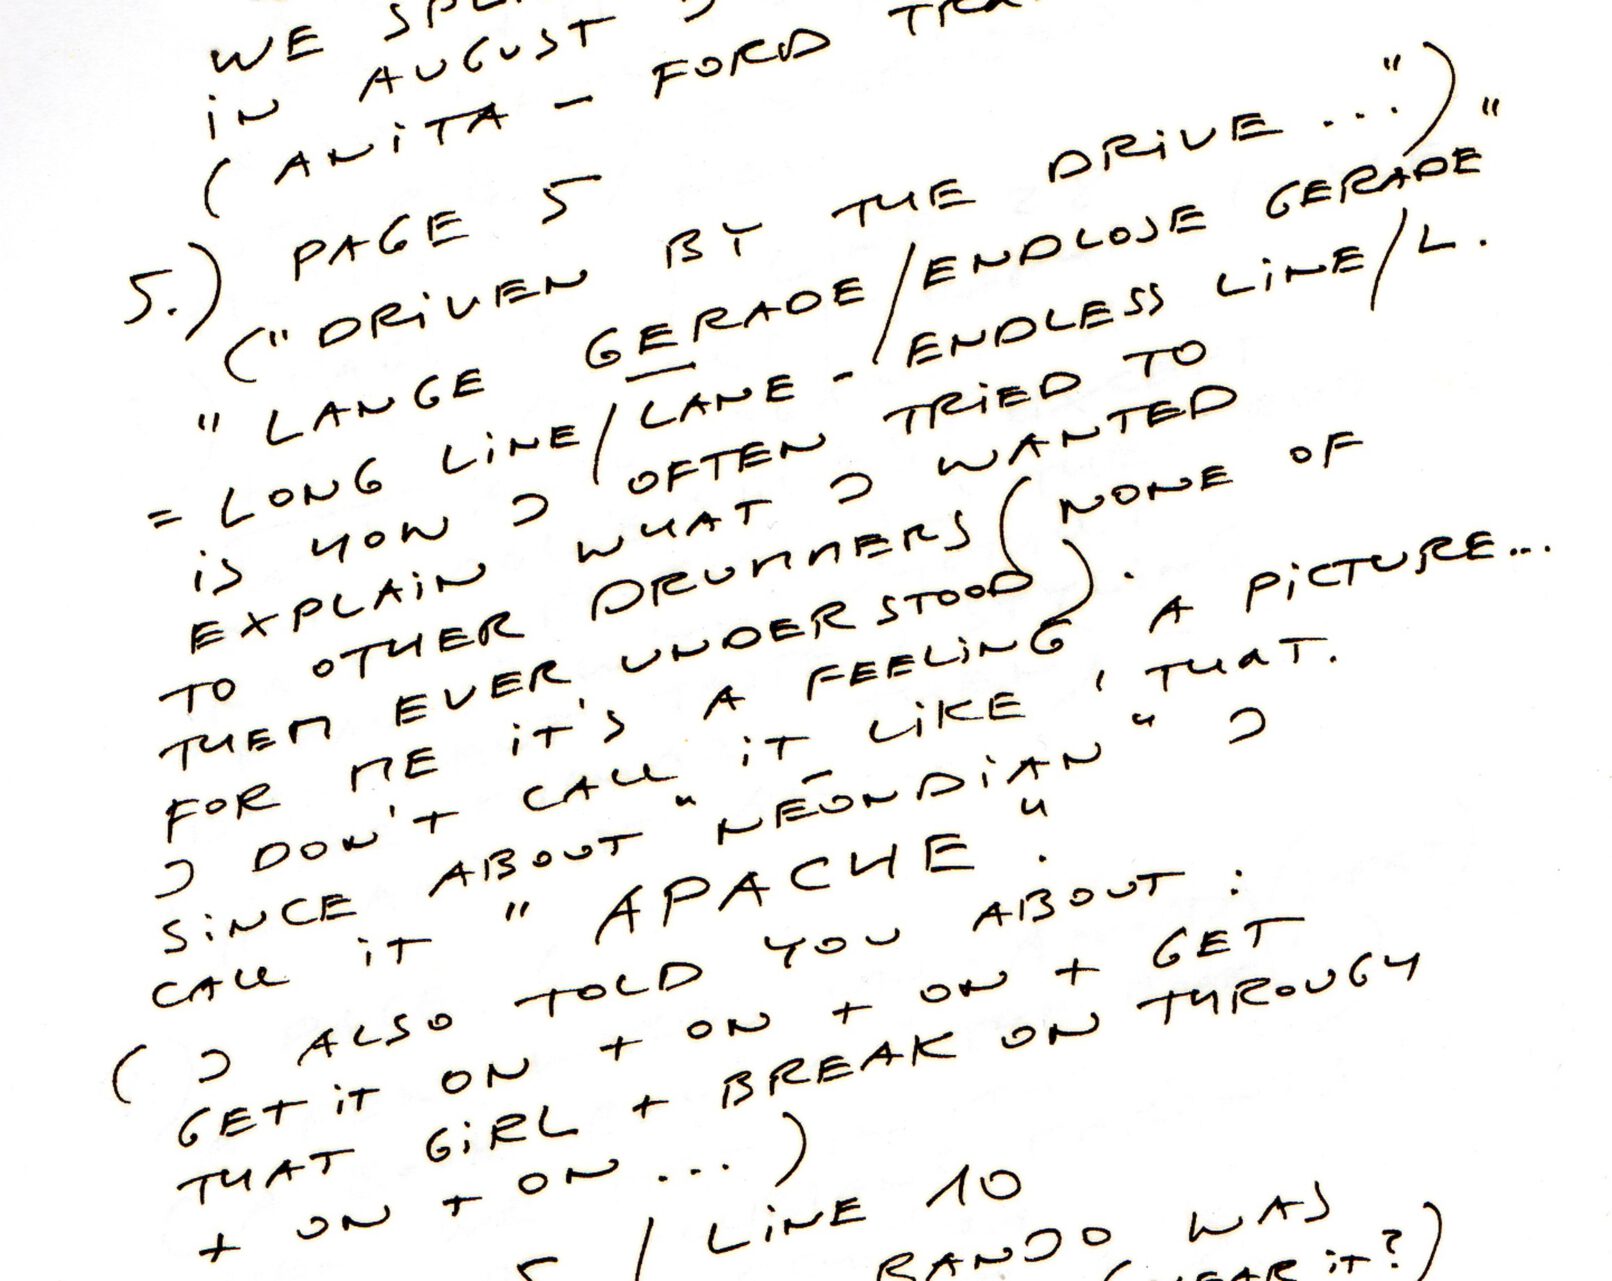 WE
IN AUGUST
(ANITA - FORD
5.) PAGE 5
("DRIVEN BY THE DRIVE ...")
"LANGE GERADE/ENDLOSE GERADE"
= LONG LINE/LANE - ENDLESS LINE/L.
IS HOW I OFTEN TRIED TO
EXPLAIN WHAT I WANTED
TO OTHER DRUMMERS (NONE OF
THEM EVER UNDERSTOOD).
FOR ME IT'S A FEELING, A PICTURE...
I DON'T CALL IT LIKE THAT.
SINCE ABOUT "NEONDIAN" I
CALL IT "APACHE".
(I ALSO TOLD YOU ABOUT:
GET IT ON + ON + ON + GET
THAT GIRL + BREAK ON THROUGH
+ ON + ON ...)
5 / LINE 10
WAS
IT?)